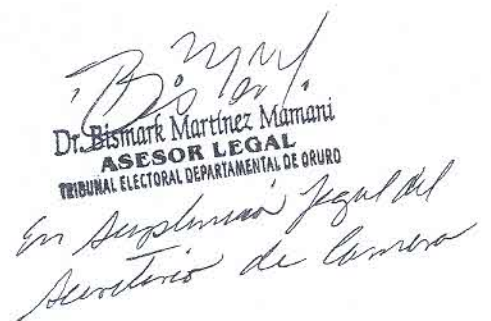 Dr. Bismark Martínez Mamani
ASESOR LEGAL
TRIBUNAL ELECTORAL DEPARTAMENTAL DE ORURO
En Suplencia legal del
Secretario de Camara